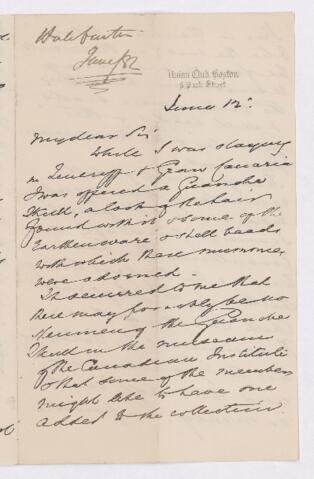 Haliburton
June/82
Union Club, Boston
8 Park Street
June 12.
My dear Sir
While I was staying
in Teneriff & Gran Canaria
I was offered a Guanche
Skull, a lock of the hair
found with it & some of the
Earthenware & shell beads
with which these mummies
were adorned.
It occurred to me that
there may possibly be no
specimen of the Guanche
Skull in the museum
of the Canadian Institute
& that some of the members
might like to have one
added to the collection